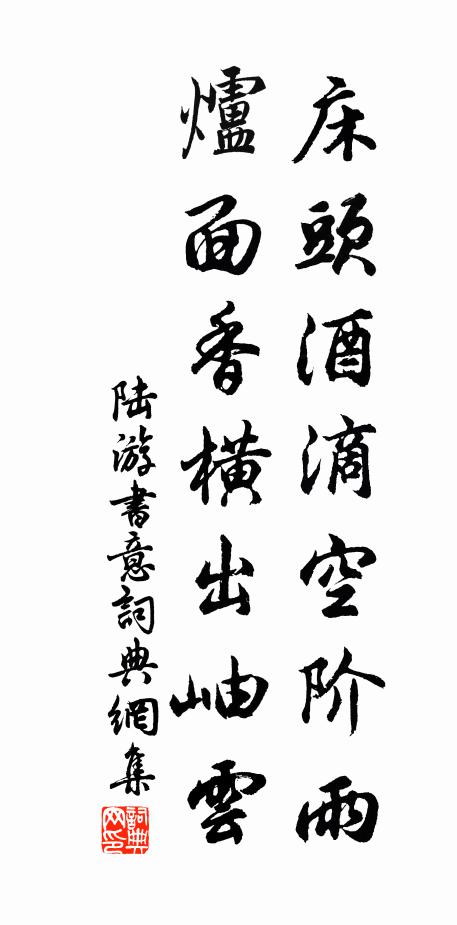 床頭酒滴空阶雨
爐面香横出岫雲
陆游書意詞典網集
詞典网印